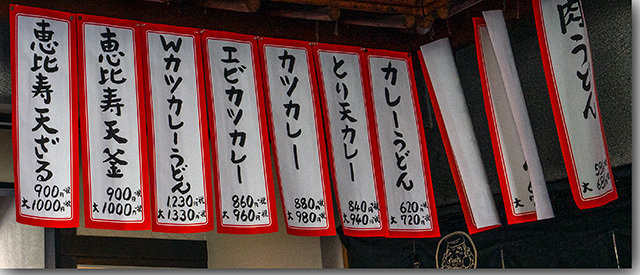 恵比寿天ざる
900円税
大1000円税
恵比寿天釜
900円税
大1000円税
Wカツカレーうどん
1.230円税
大1.330円税
エビカツカレー
860円税
大960円税
カツカレー
880円税
大980円税
とり天カレー
840円税
大940円税
カレーうどん
620円税
大720円税
肉うどん
大